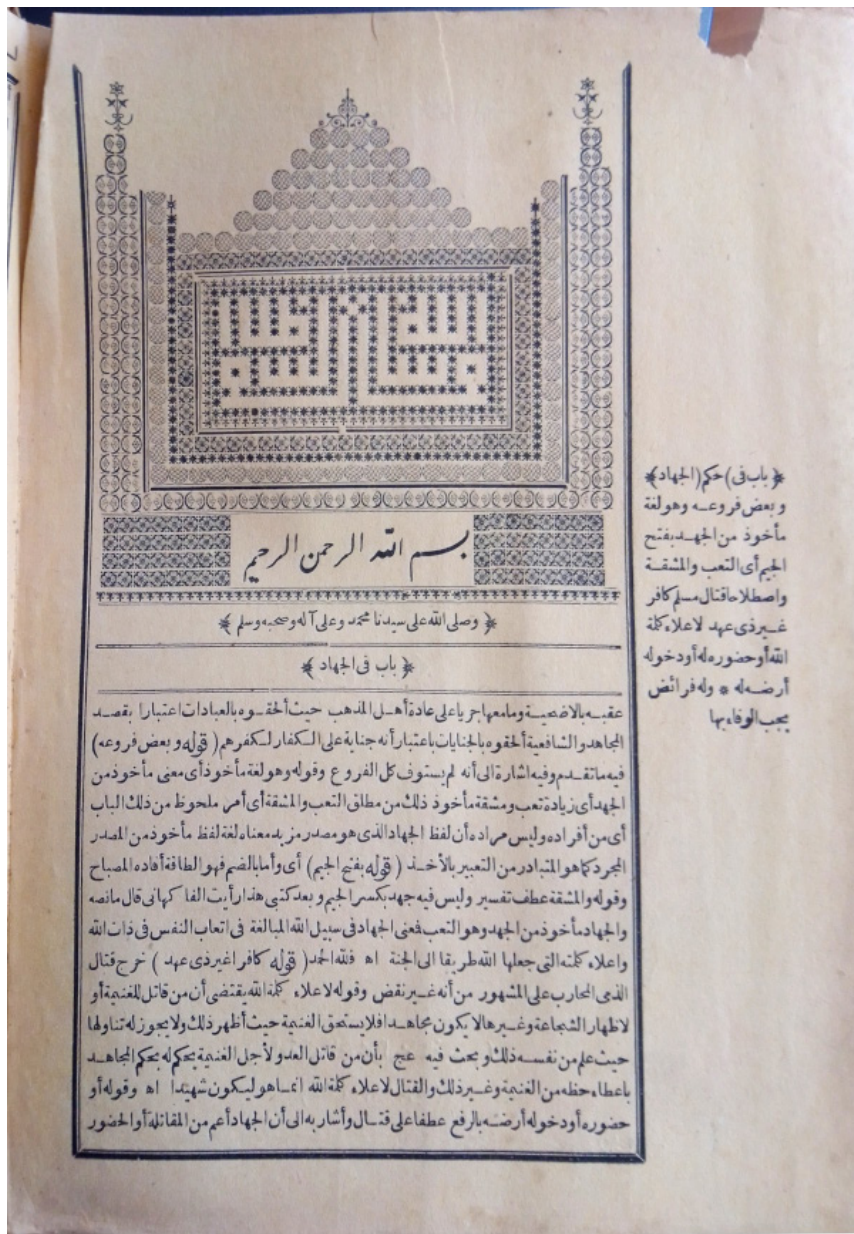 بسم الله الرحمن الرحيم
﴿ وصلى الله على سيدنا محمد وعلى آله وصحبه وسلم ﴾
﴿ باب فى الجهاد ﴾
عقبه بالاضحية وما معها جريا على عادة أهل المذهب حيث ألحقوه بالعبادات اعتبارا بقصد
المجاهد والشافعية ألحقوه بالجنايات باعتبار أنه جناية على الكفار لكفرهم (قوله وبعض فروعه)
فيه ما تقدم وفيه اشارة الى أنه لم يستوف كل الفروع وقوله وهو لغة مأخوذ أى معنى مأخوذ من
الجهد أى زيادة تعب ومشقة مأخوذ ذلك من مطلق التعب والمشقة أى أمر ملحوظ من ذلك الباب
أى من أفراده وليس مراده أن لفظ الجهاد الذى هو مصدر مزيد معناه لغة لفظ مأخوذ من المصدر
المجرد كما هو المتبادر من التعبير بالأخذ (قوله بفتح الجيم) أى وأما بالضم فهو الطاقة أفاده المصباح
وقوله والمشقة عطف تفسير وليس فيه جهد بكسر الجيم وبعد كتبى هذا رأيت الفا كهانى قال ما نصه
والجهاد مأخوذ من الجهد وهو التعب فمعنى الجهاد فى سبيل الله المبالغة فى اتعاب النفس فى ذات الله
واعلاء كلمته التى جعلها الله طريقا الى الجنة اه فلله الحمد (قوله كافرا غير ذى عهد) خرج قتال
الذمى المحارب على المشهور من أنه غير نقض وقوله لاعلاء كلمة الله يقتضى أن من قاتل للغنيمة أو
لاظهار الشجاعة وغيرها لا يكون مجاهدا فلا يستحق الغنيمة حيث أظهر ذلك ولا يجوز له تناولها
حيث علم من نفسه ذلك وبحث فيه عج بأن من قاتل العدو لأجل الغنيمة يحكم له بحكم المجاهد
باعطاء حظه من الغنيمة وغير ذلك والقتال لاعلاء كلمة الله انما هو ليكون شهيدا اه وقوله أو
حضوره أو دخوله أرضه بالرفع عطفا على قتال وأشار به الى أن الجهاد أعم من المقاتلة أو الحضور
﴿ باب فى) حكم (الجهاد ﴾
وبعض فروعه وهو لغة
مأخوذ من الجهد بفتح
الجيم أى التعب والمشقة
واصطلاحا قتال مسلم كافر
غير ذى عهد لاعلاء كلمة
الله أو حضوره له أو دخوله
أرضه له * وله فرائض
يجب الوفاء بها